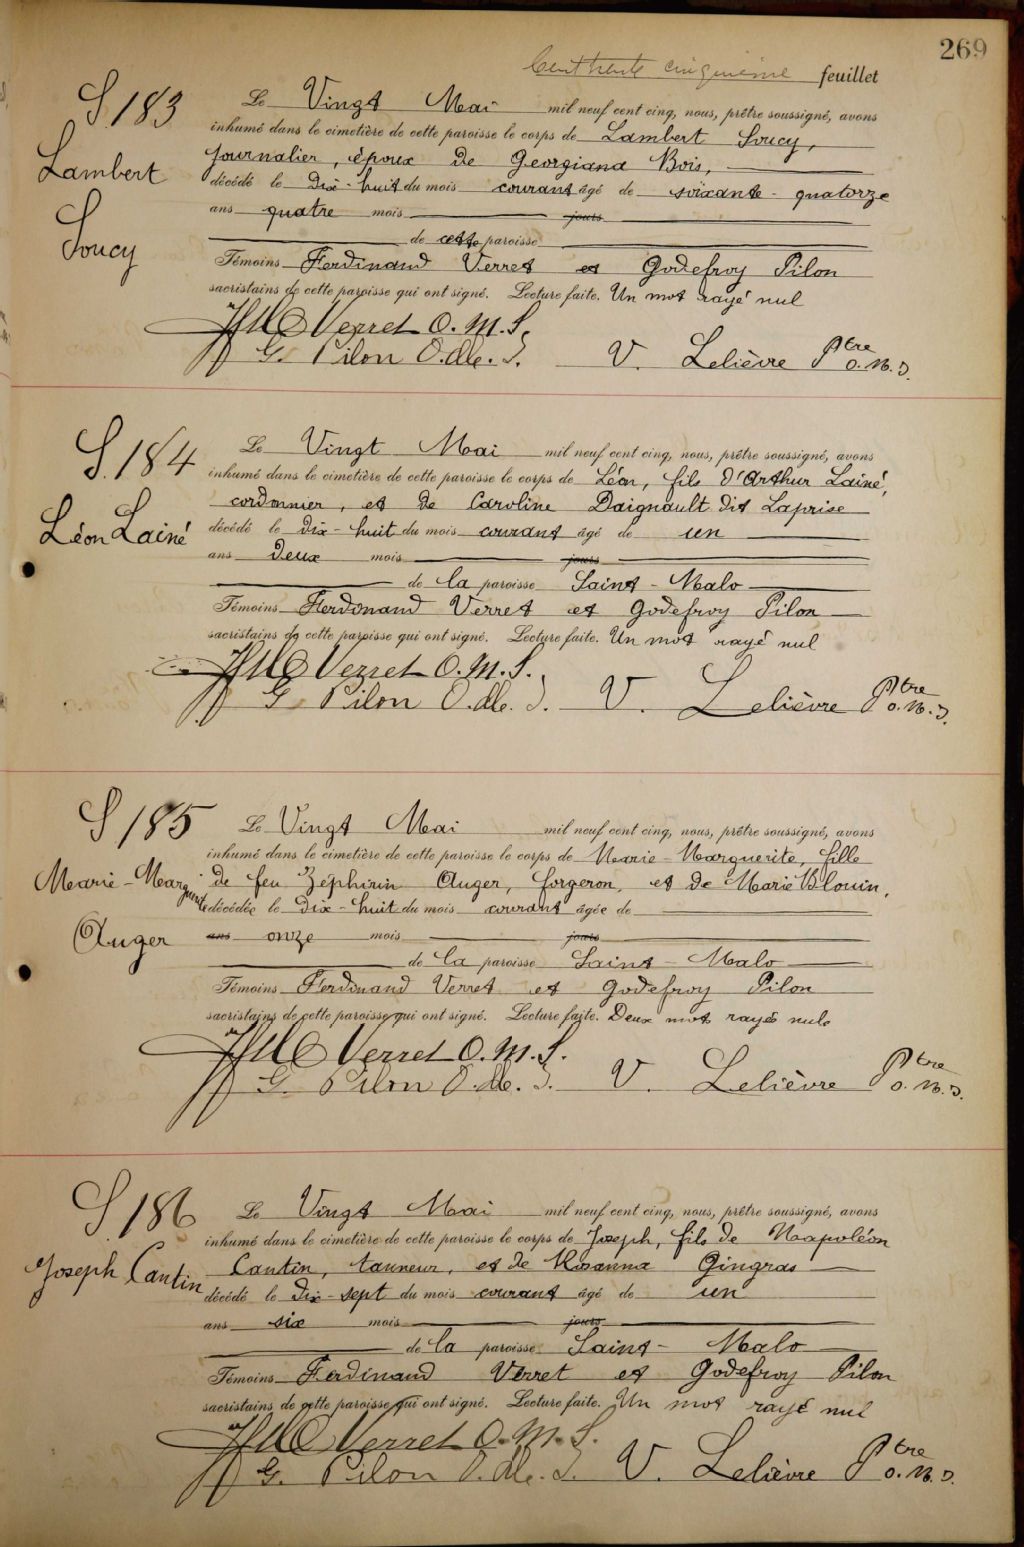 269
Cent trente cinquième feuillet
S. 183
Lambert
Soucy
Le Vingt Mai mil neuf cent cinq, nous, prêtre soussigné, avons
inhumé dans le cimetière de cette paroisse le corps de Lambert Soucy,
journalier, époux de Georgiana Bois,
décédé le dix-huit du mois courant âgé de soixante-quatorze
ans quatre mois jours
de cette paroisse
Témoins Ferdinand Verret et Godefroy Pilon
sacristains de cette paroisse qui ont signé. Lecture faite. Un mot rayé nul
Verret O.M.S.
G. Pilon O.M.I. V. Lelièvre Ptre
O.M.I.
S. 184
Léon Lainé
Le Vingt Mai mil neuf cent cinq, nous, prêtre soussigné, avons
inhumé dans le cimetière de cette paroisse le corps de Léon, fils d'Arthur Lainé,
cordonnier, et de Caroline Daignault dit Laprise
décédé le dix-huit du mois courant âgé de un
ans deux mois jours
de la paroisse Saint-Malo
Témoins Ferdinand Verret et Godefroy Pilon
sacristains de cette paroisse qui ont signé. Lecture faite. Un mot rayé nul
Verret O.M.S.
G. Pilon O.M.I. V. Lelièvre Ptre
O.M.I.
S 185
Marie-Marguerite
Auger
Le Vingt Mai mil neuf cent cinq, nous, prêtre soussigné, avons
inhumé dans le cimetière de cette paroisse le corps de Marie-Marguerite, fille
de feu Zéphirin Auger, forgeron, et de Marie Blouin,
décédée le dix-huit du mois courant âgée de
ans onze mois jours
de la paroisse Saint-Malo
Témoins Ferdinand Verret et Godefroy Pilon
sacristains de cette paroisse qui ont signé. Lecture faite. Deux mots rayés nuls
Verret O.M.S.
G. Pilon O.M.I. V. Lelièvre Ptre
O.M.I.
S. 186
Joseph Cantin
Le Vingt Mai mil neuf cent cinq, nous, prêtre soussigné, avons
inhumé dans le cimetière de cette paroisse le corps de Joseph, fils de Napoléon
Cantin, tanneur, et de Rosanna Gingras
décédé le dix-sept du mois courant âgé de un
ans six mois jours
de la paroisse Saint-Malo
Témoins Ferdinand Verret et Godefroy Pilon
sacristains de cette paroisse qui ont signé. Lecture faite. Un mot rayé nul
Verret O.M.S.
G. Pilon O.M.I. V. Lelièvre Ptre
O.M.I.